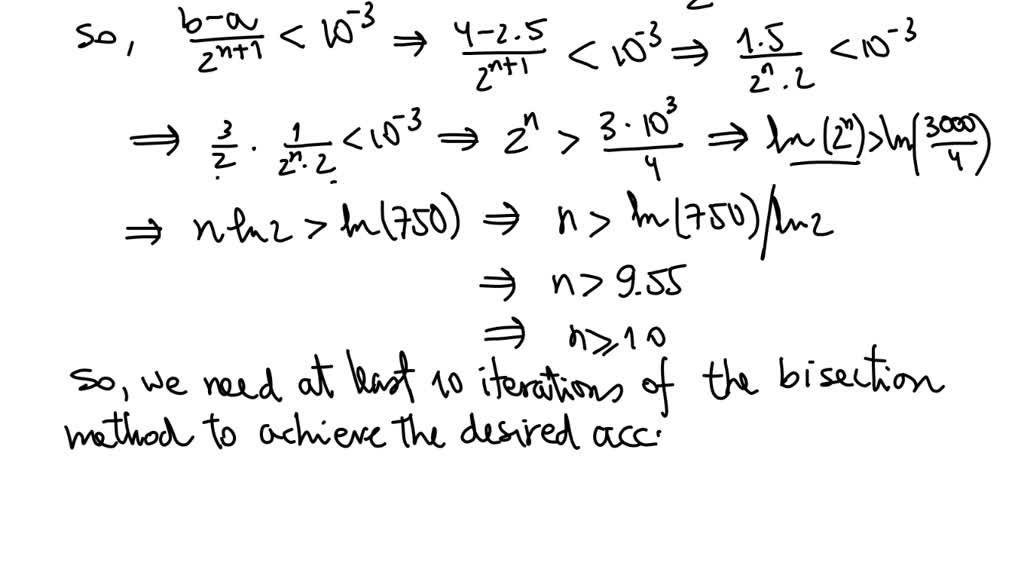 So, (b-a)/(2^(n+1)) < 10^-3 ⇒ (4-2.5)/(2^(n+1)) < 10^-3 ⇒ 1.5/(2^n · 2) < 10^-3
⇒ 3/2 · 1/(2^n · 2) < 10^-3 ⇒ 2^n > (3 · 10^3)/4 ⇒ ln(2^n) > ln(3000/4)
⇒ n ln2 > ln(750) ⇒ n > ln(750)/ln2
⇒ n > 9.55
⇒ n ≥ 10
So, we need at least 10 iterations of the bisection
method to achieve the desired acc